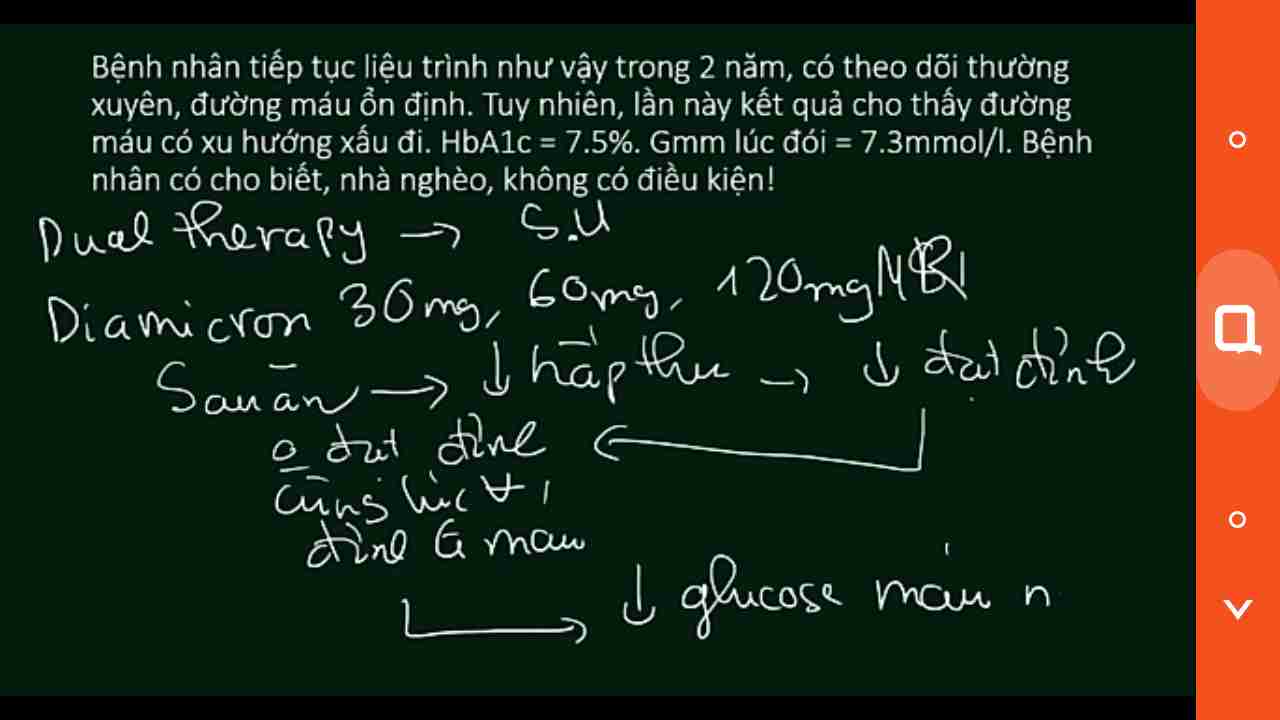 Bệnh nhân tiếp tục liệu trình như vậy trong 2 năm, có theo dõi thường
xuyên, đường máu ổn định. Tuy nhiên, lần này kết quả cho thấy đường
máu có xu hướng xấu đi. HbA1c = 7.5%. Gmm lúc đói = 7.3mmol/l. Bệnh
nhân có cho biết, nhà nghèo, không có điều kiện!
Dual therapy → S.U
Diamicron 30mg, 60mg, 120mg
Sau ăn → ↓ hấp thu → ↓ đạt đỉnh
đạt đỉnh
cùng lúc
đỉnh G máu
↓ glucose máu n